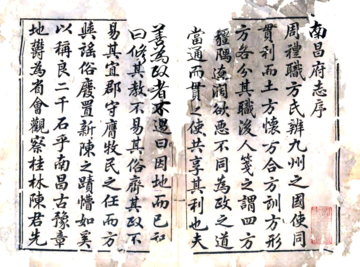 南昌府志序
周禮職方氏辨九州之國使同
貫利而土方懷方合方訓方形
方各分其職後人箋之謂四方
疆隅遠闊欲惡不同為政之道
當通而貫之使共享其利也夫
善為政者不過曰因地而已和
曰修其教不易其俗齊其政不
易其宜郡守膺牧民之任而方
輿謠俗廢置新陳之蹟懵如奚
以稱良二千石乎南昌古豫章
地鬱為省會觀察桂林陳君先